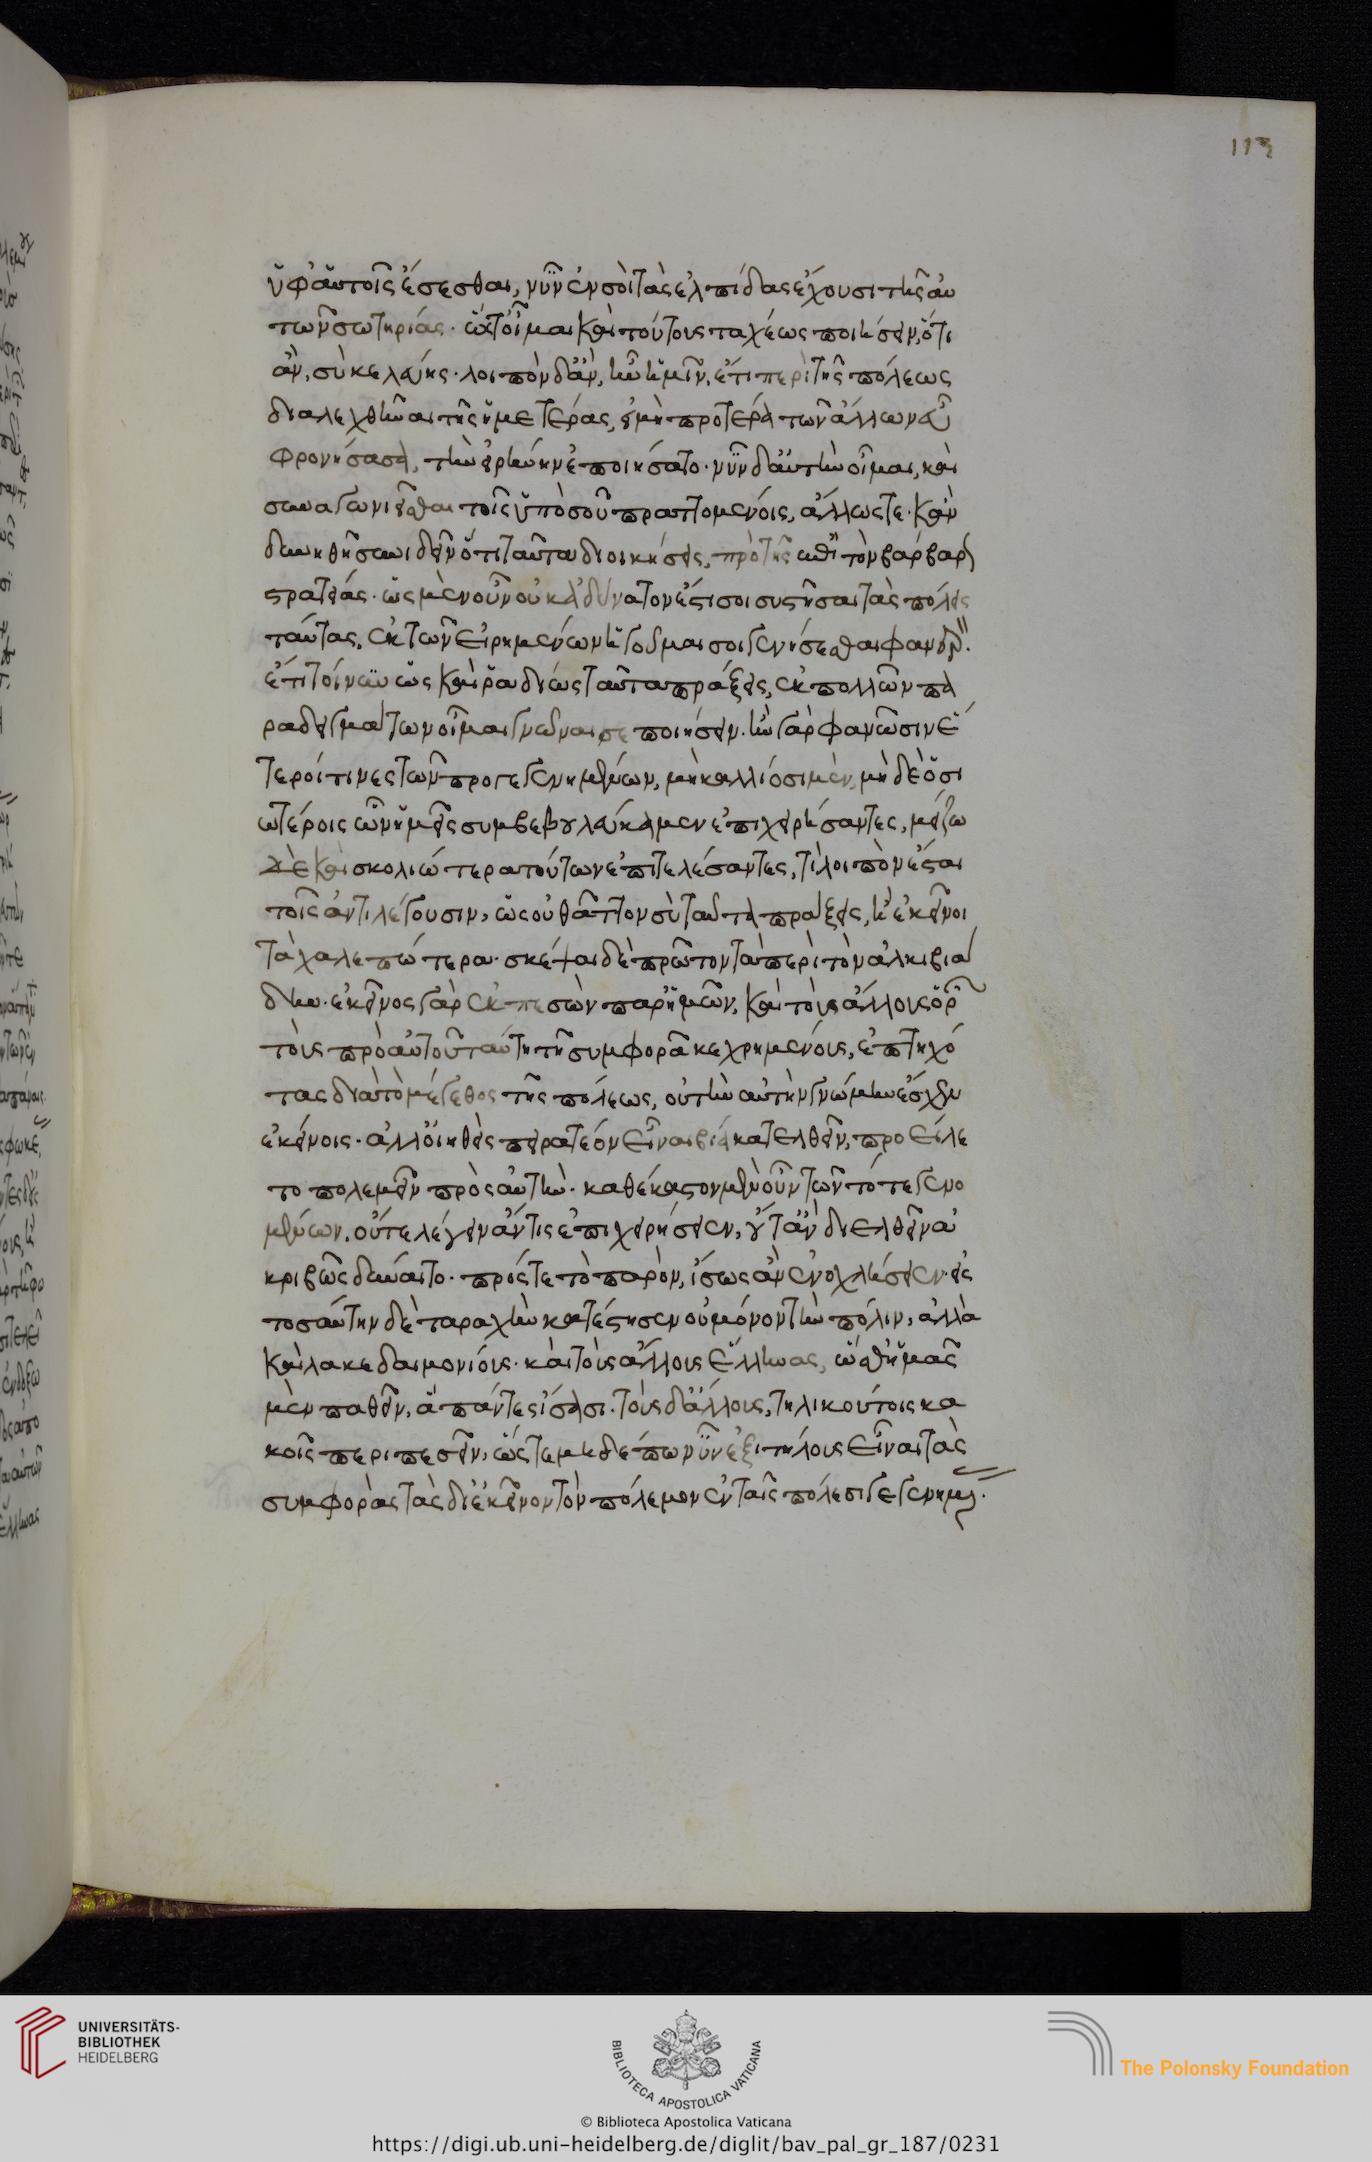 113
ὑφ' αὑτοῖς ἔσεσθαι, νῦν ἐν σοὶ τὰς ἐλπίδας ἔχουσι τῆς αὑ
τῶν σωτηρίας. ὥστ' οἶμαι καὶ τούτους ταχέως ποιήσειν, ὅτι
ἂν, σὺ κελεύῃς. λοιπὸν δ' ἂν, εἴη ἡμῖν, ἔτι περὶ τῆς πόλεως
διαλεχθῆναι τῆς ἡμετέρας, ἣ προτέρα τῶν ἄλλων εὖ
φρονήσασα, τὴν εἰρήνην ἐποιήσατο. νῦν δ' αὐτὴν οἶμαι, καὶ
συναγωνιεῖσθαι τοῖς ὑπὸ σοῦ πραττομένοις, ἄλλως τε. κἂν
δυνηθῇ συνιδεῖν ὅτι ταῦτα διοικήσεις, πρὸ τῆς ἐπὶ τὸν βάρβαρον
στρατείας. ὡς μὲν οὖν οὐκ ἀδύνατον ἐστί σοι συστῆσαι τὰς πόλεις
ταύτας, ἐκ τῶν εἰρημένων ἡγοῦμαι σοι γενήσεσθαι φανερόν.
ἔτι τοίνυν ὡς καὶ ῥαδίως ταῦτα πράξεις, ἐκ πολλῶν πα
ραδειγμάτων οἶμαι γνῶναι σε ποιήσειν. ἢν γὰρ φανῶσιν ἕ
τεροί τινες τῶν προγεγενημένων, μὴ καλλίοσι μὲν, μὴ δὲ ὁσι
ωτέροις ὧν ἡμεῖς συμβεβουλεύκαμεν ἐπιχειρήσαντες, μείζω
δὲ καὶ σκολιώτερα τούτων ἐπιτελέσαντες, τί λοιπὸν ἔσται
τοῖς ἀντιλέγουσιν, ὡς οὐ θᾶττον σὺ ταῦτα πράξεις, ἢ ἐκεῖνοι
τὰ χαλεπώτερα. σκέψαι δὲ πρῶτον τὰ περὶ τὸν ἀλκιβιά
δην. ἐκεῖνος γὰρ ἐκπεσὼν παρ' ἡμῶν, καὶ τοὺς ἄλλους ὁρῶν
τοὺς πρὸ αὐτοῦ ταύτῃ τῇ συμφορᾷ κεχρημένους, ἐπτηχό
τας διὰ τὸ μέγεθος τῆς πόλεως, οὐ τὴν αὐτὴν γνώμην ἔσχεν
ἐκείνοις. ἀλλ' οἰηθεὶς πειρατέον εἶναι βίᾳ κατελθεῖν, προείλε
το πολεμεῖν πρὸς αὐτήν. καθ' ἕκαστον μὲν οὖν τῶν τότε γενο
μένων, οὔτε λέγειν ἄν τις ἐπιχειρήσειεν, οὔτ' ἂν διελθεῖν ἀ
κριβῶς δύναιτο. πρός τε τὸ παρὸν, ἴσως ἂν ἐνοχλήσειεν. εἰς
τοσαύτην δὲ ταραχὴν κατέστησεν οὐ μόνον τὴν πόλιν, ἀλλὰ
καὶ λακεδαιμονίους. καὶ τοὺς ἄλλους ἕλληνας, ὥσθ' ἡμᾶς
μὲν παθεῖν, ἃ πάντες ἴσασι. τοὺς δ' ἄλλους, τηλικούτοις κα
κοῖς περιπεσεῖν, ὥστε μηδέπω νῦν ἐξιτήλους εἶναι τὰς
συμφορὰς τὰς δι' ἐκεῖνον τὸν πόλεμον ἐν ταῖς πόλεσι γεγενημένας.
UNIVERSITÄTS-
BIBLIOTHEK
HEIDELBERG
BIBLIOTECA APOSTOLICA VATICANA
The Polonsky Foundation
© Biblioteca Apostolica Vaticana
https://digi.ub.uni-heidelberg.de/diglit/bav_pal_gr_187/0231